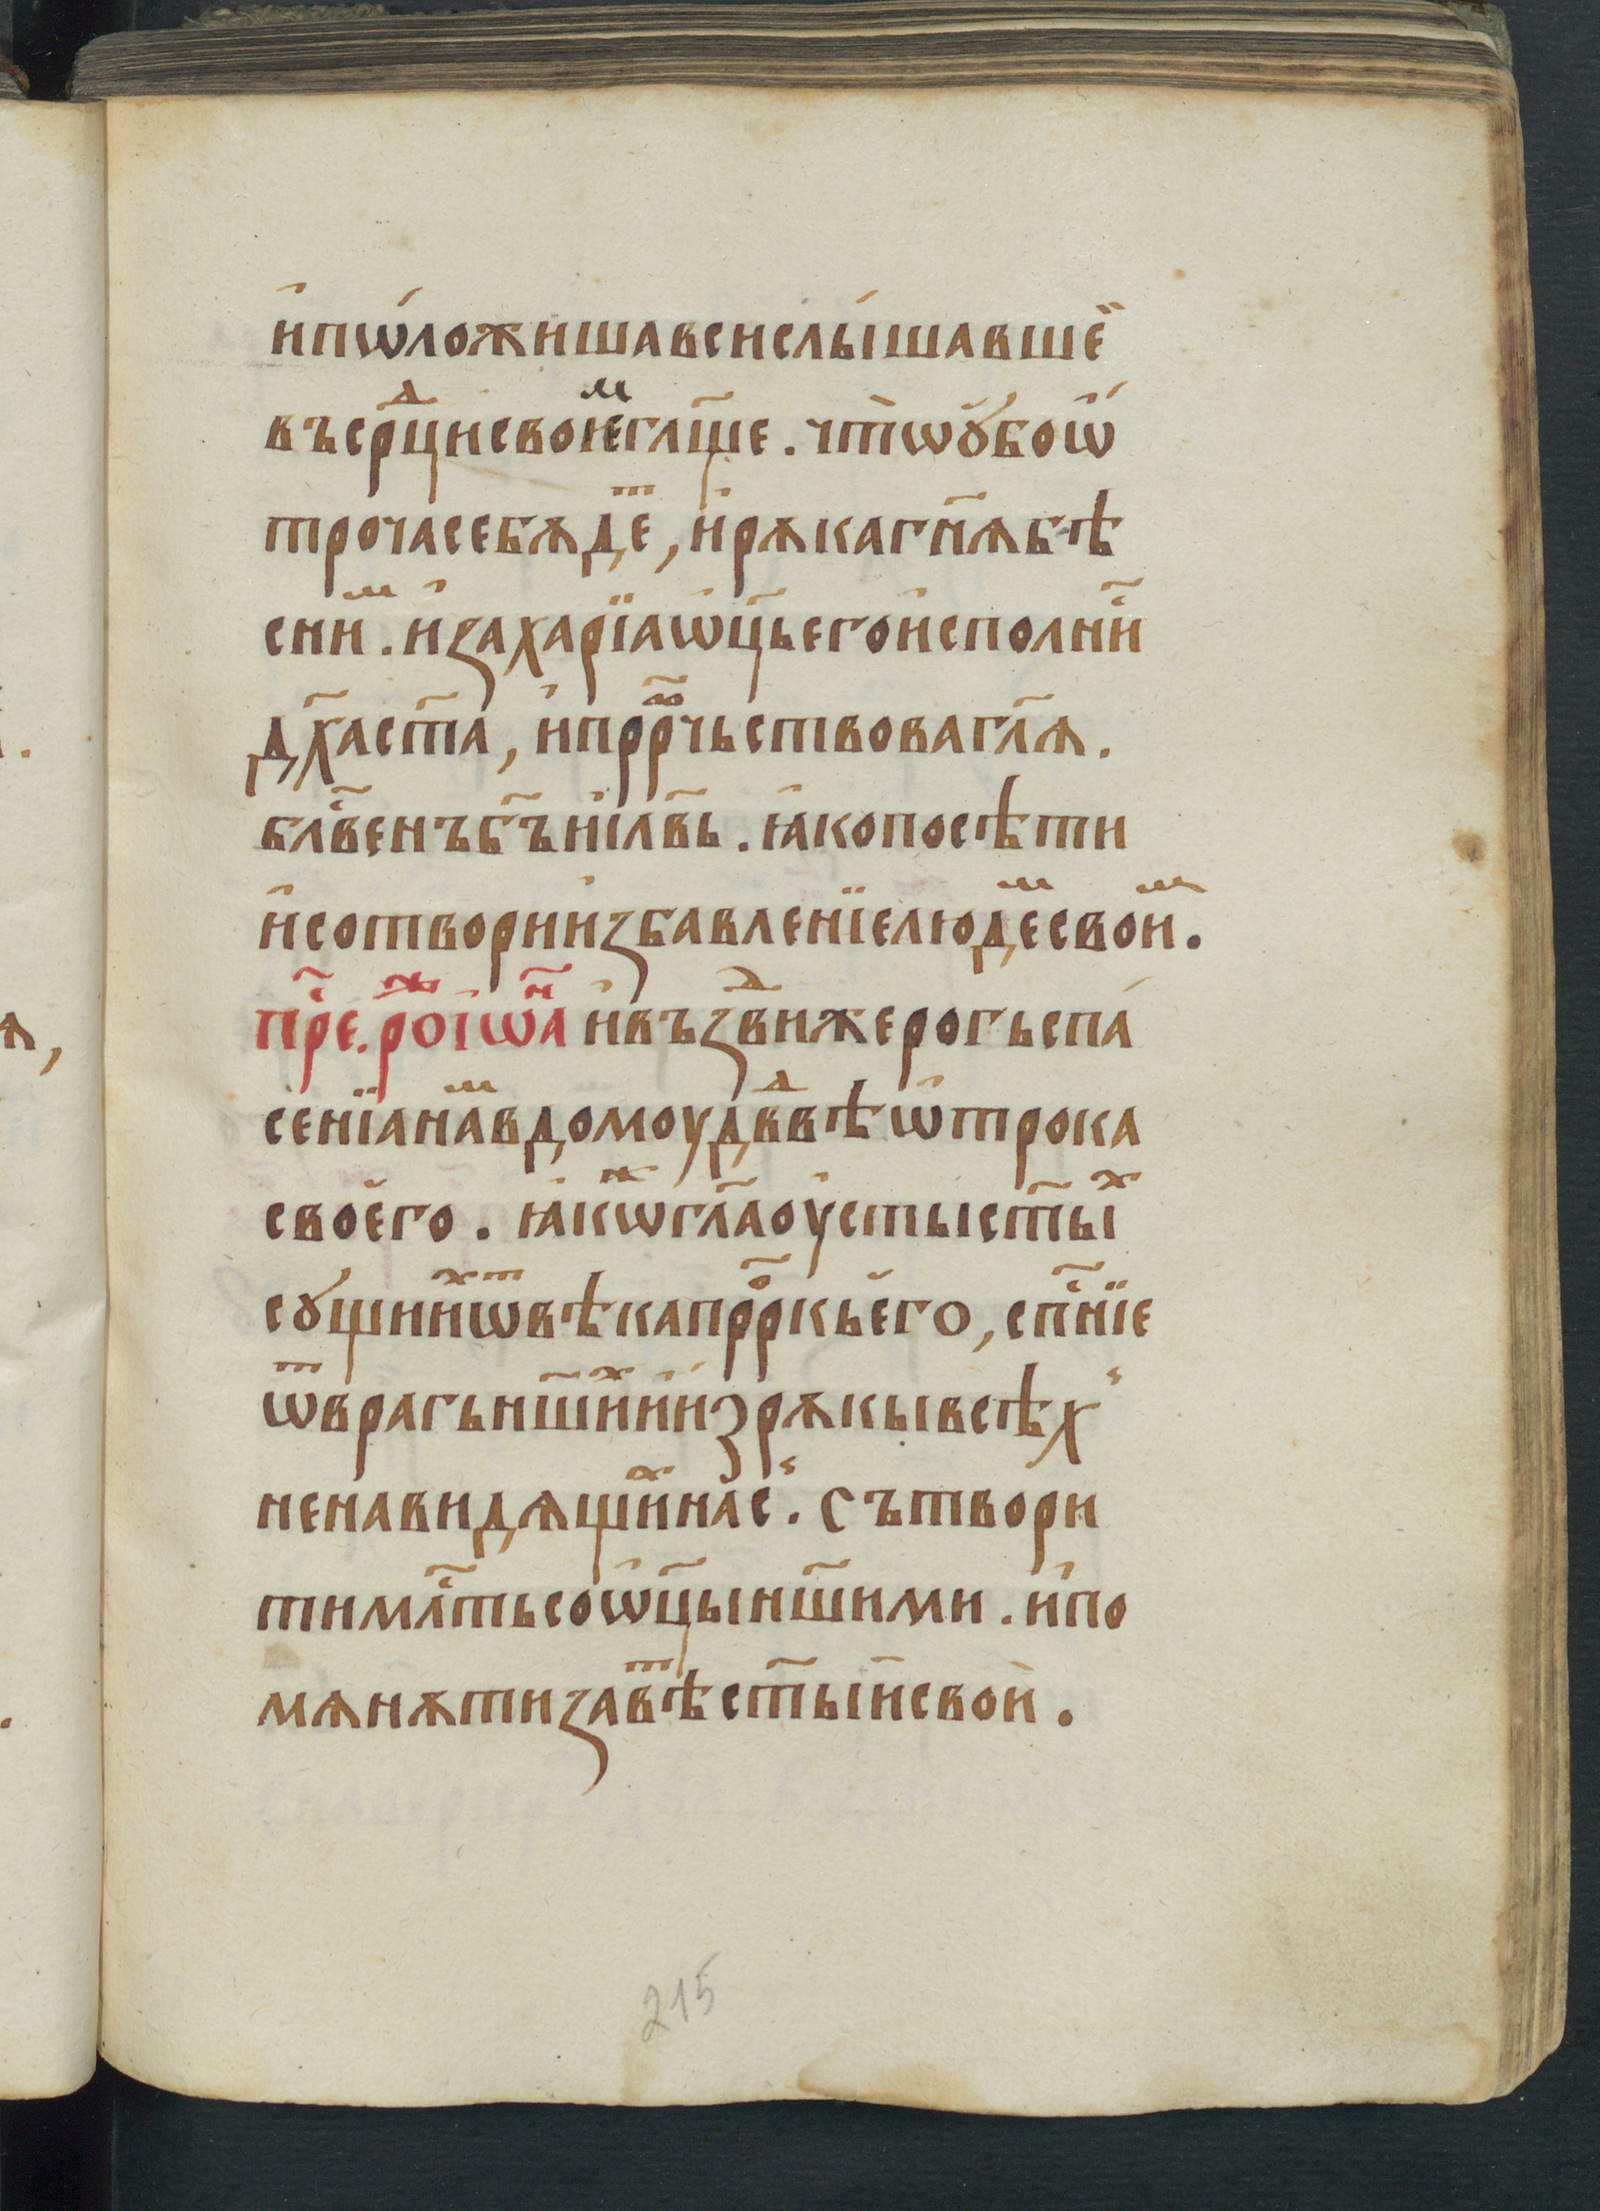 и҆пѡ́ложишавсислы́шавшеӗ
въср҃ⷣцисвоиⷨегл҃ще. чт̀ѡу҆́боѡ҆́
трочасебѫдеⷮ, и҆рѫкагн҃ѧбѣ
сниⷨ. и҆захарїаѡ҆ц҃ьегои҆сполниⷭ҇
дх҃аст҃а, и҆прⷪ҇рчьствовагл҃ѧ.
блⷭ҇венъб҃ъиі҆л҃вь. ꙗ҆копосѣти
и҆сотвории҆збавленїелюдеⷨсвоиⷨ.
Прⷣе. роⷤі҆ѡаⷩ҇ и҆възⷣвижерогьспа́
сенїанаⷨвдомоудв҃ⷣвѣѡ҆трока
своего. ꙗ҆коⷤѡгл҃аоу҆стыст҃ыⷯ
су́щииⷯѿвѣкапрⷪ҇ркьего, сп҃снїе
ѿврагьнш҃иⷯи҆изрѫкывсѣх
ненавидѧщиⷯнас. Сътвори
тимлⷭ҇тьсоѡ҆ц҃ынш҃ими. и҆по
мѧнѫтизавѣⷮст҃ыи҆свои.
215